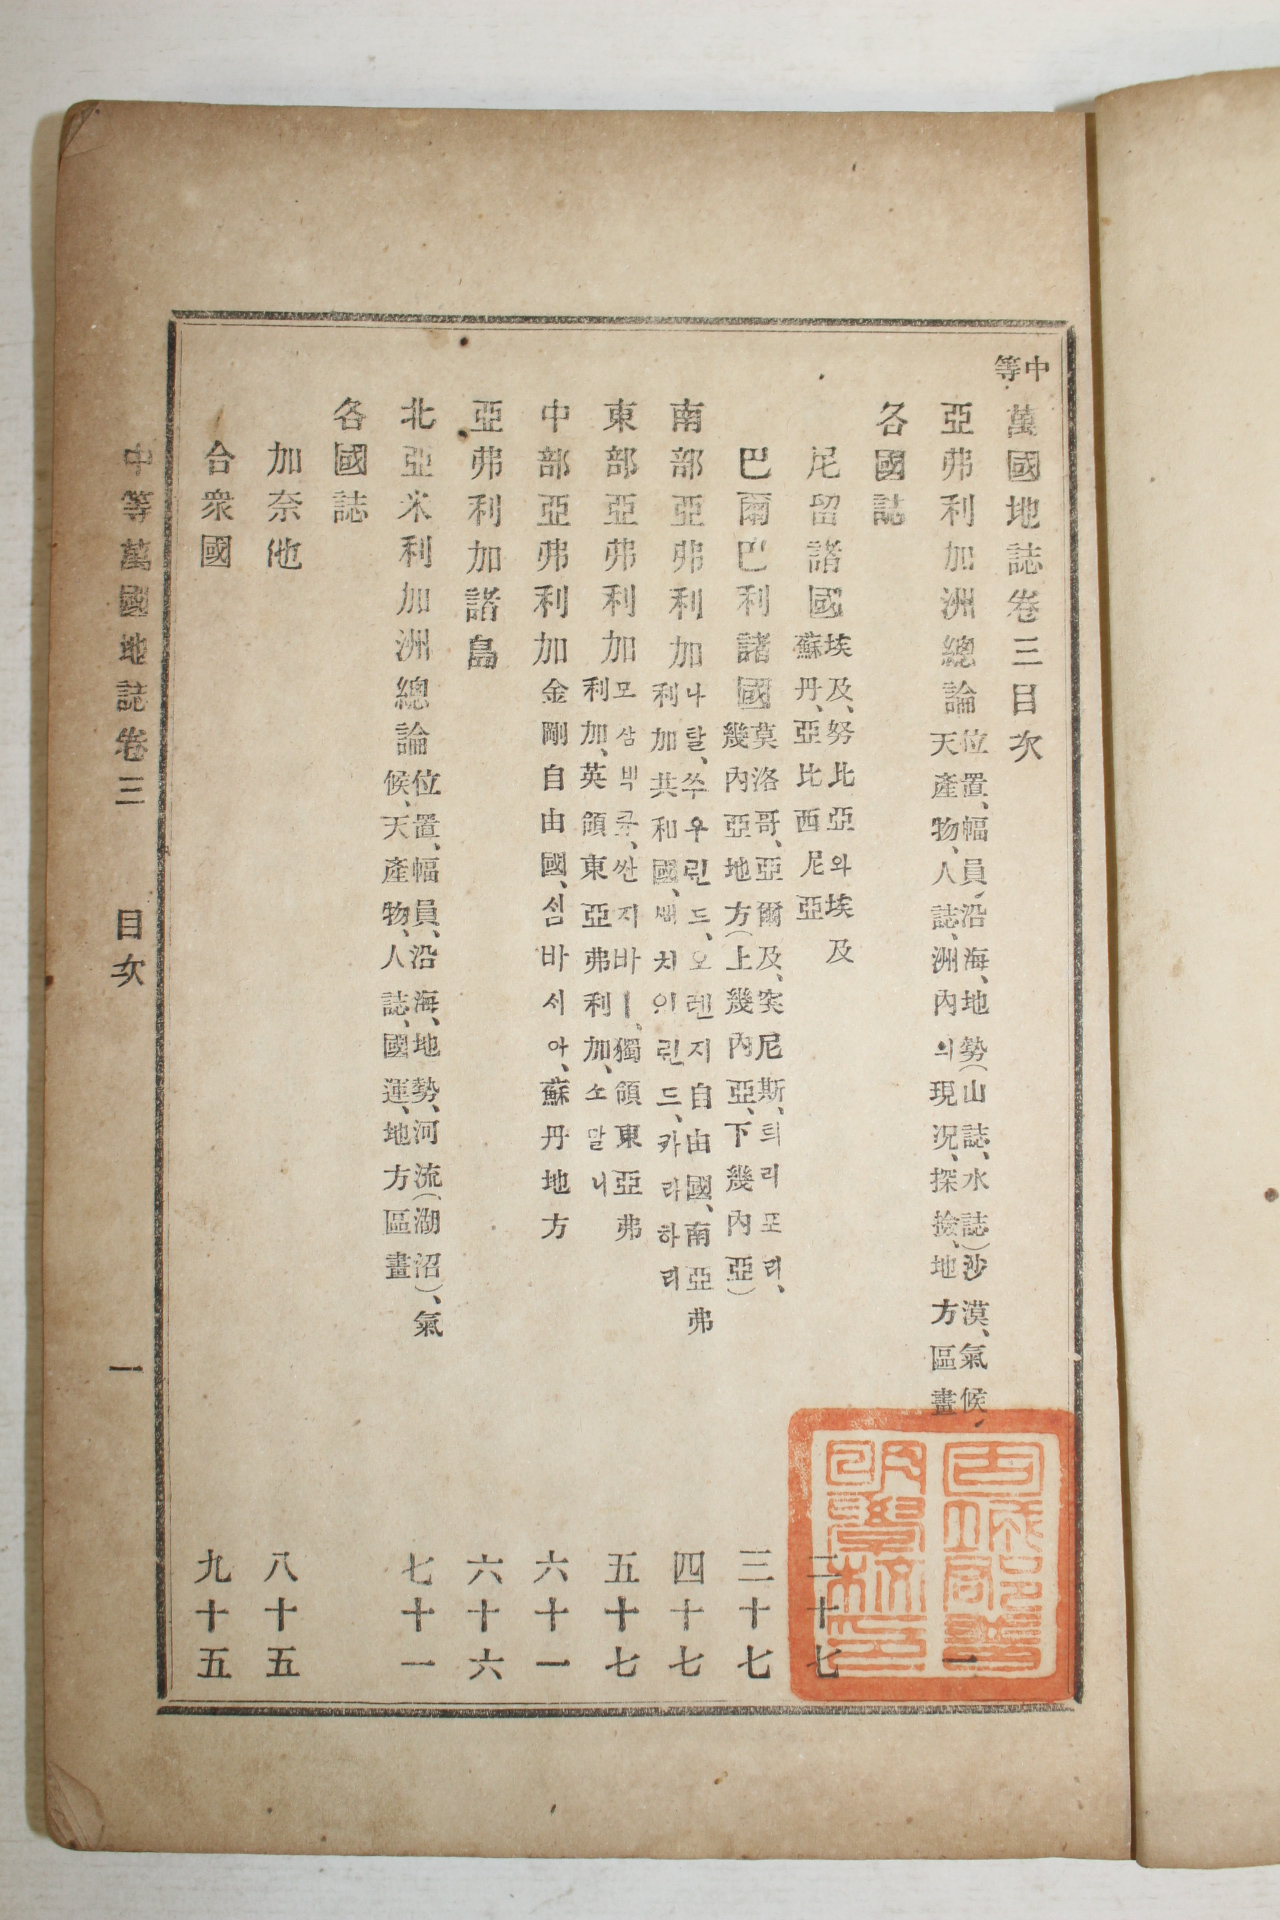 中等 萬國地誌卷三目次
亞弗利加洲總論 位置、幅員、沿海、地勢(山誌、水誌)沙漠、氣候、天產物、人誌、洲內의現況、探撿、地方區畫 一
各國誌
尼留諸國 埃及、努比亞와埃及蘇丹、亞比西尼亞 二十七
巴爾巴利諸國 莫洛哥、亞爾及、突尼斯、틔리포리、幾內亞地方(上幾內亞、下幾內亞) 三十七
南部亞弗利加 나탈、쑤우린드、오렌지自由國、南亞弗利加共和國、배치의린드、카라하리 四十七
東部亞弗利加 모삼빅큐、싼지바ㅣ、獨領東亞弗利加、英領東亞弗利加、소말니 五十七
中部亞弗利加 金剛自由國、섬바시아、蘇丹地方 六十一
亞弗利加諸島 六十六
北亞米利加洲總論 位置、幅員、沿海、地勢、河流(湖沼)、氣候、天產物、人誌、國運、地方區畫 七十一
各國誌
加奈他 八十五
合衆國 九十五
中等萬國地誌卷三 目次 一